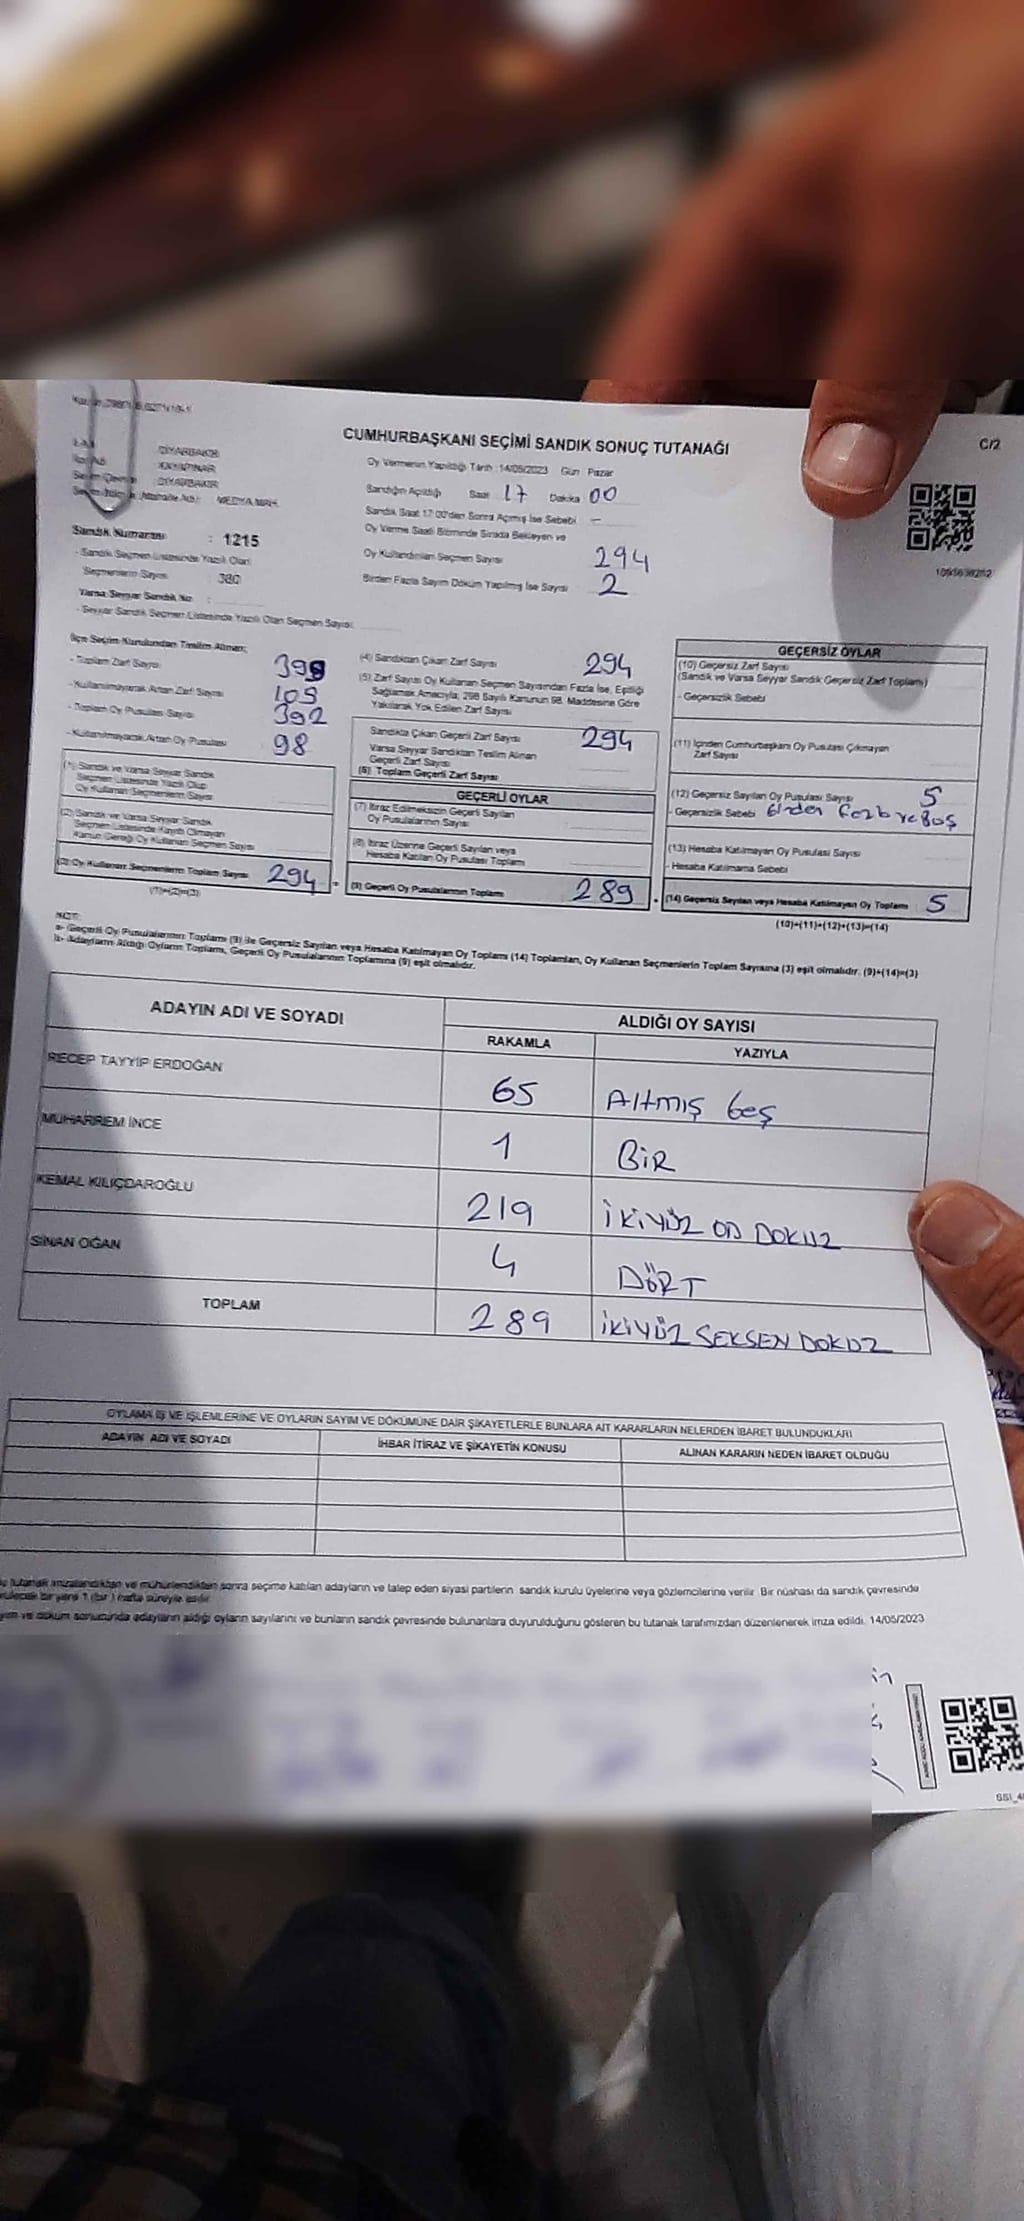 C/2
CUMHURBAŞKANI SEÇİMİ SANDIK SONUÇ TUTANAĞI
DİYARBAKIR
KAYAPINAR
DİYARBAKIR
MEDYA MAH.
Oy Vermenin Yapıldığı Tarih :14/05/2023 Gün : Pazar
Sandığın Açıldığı Saat 17 Dakika 00
Sandık Saat 17:00'den Sonra Açılmış İse Sebebi -
Oy Verme Saati Bitiminde Sırada Bekleyen ve
Oy Kullandırılan Seçmen Sayısı 294
Birden Fazla Sayım Döküm Yapılmış İse Sayısı 2
Sandık Numarası : 1215
- Sandık Seçmen Listesinde Yazılı Olan
Seçmenlerin Sayısı 380
Varsa Seyyar Sandık No :
- Seyyar Sandık Seçmen Listesinde Yazılı Olan Seçmen Sayısı:
İlçe Seçim Kurulundan Teslim Alınan;
- Toplam Zarf Sayısı
- Kullanılmayarak Artan Zarf Sayısı 105
- Toplam Oy Pusulası Sayısı 392
- Kullanılmayarak Artan Oy Pusulası 98
(1) Sandık ve Varsa Seyyar Sandık
Seçmen Listesinde Yazılı Olup
Oy Kullanan Seçmenlerin Sayısı
(2) Sandık ve Varsa Seyyar Sandık
Seçmen Listesinde Kayıtlı Olmayan
Kanun Gereği Oy Kullanan Seçmen Sayısı
(3) Oy Kullanan Seçmenlerin Toplam Sayısı 294
(1)+(2)=(3)
(4) Sandıktan Çıkan Zarf Sayısı 294
(5) Zarf Sayısı Oy Kullanan Seçmen Sayısından Fazla İse, Eşitliği
Sağlamak Amacıyla; 298 Sayılı Kanunun 98. Maddesine Göre
Yakılarak Yok Edilen Zarf Sayısı
Sandıkta Çıkan Geçerli Zarf Sayısı 294
Varsa Seyyar Sandıktan Teslim Alınan
Geçerli Zarf Sayısı
(6) Toplam Geçerli Zarf Sayısı
GEÇERLİ OYLAR
(7) İtiraz Edilmeksizin Geçerli Sayılan
Oy Pusulalarının Sayısı
(8) İtiraz Üzerine Geçerli Sayılan veya
Hesaba Katılan Oy Pusulası Toplamı
(9) Geçerli Oy Pusulalarının Toplamı 289
GEÇERSİZ OYLAR
(10) Geçersiz Zarf Sayısı
(Sandık ve Varsa Seyyar Sandık Geçersiz Zarf Toplamı)
- Geçersizlik Sebebi
(11) İçinden Cumhurbaşkanı Oy Pusulası Çıkmayan
Zarf Sayısı
(12) Geçersiz Sayılan Oy Pusulası Sayısı 5
- Geçersizlik Sebebi Birden Fazla ve Boş
(13) Hesaba Katılmayan Oy Pusulası Sayısı
- Hesaba Katılmama Sebebi
(14) Geçersiz Sayılan veya Hesaba Katılmayan Oy Toplamı 5
(10)+(11)+(12)+(13)=(14)
NOT:
a- Geçerli Oy Pusulalarının Toplamı (9) ile Geçersiz Sayılan veya Hesaba Katılmayan Oy Toplamı (14) Toplamları, Oy Kullanan Seçmenlerin Toplam Sayısına (3) eşit olmalıdır. (9)+(14)=(3)
b- Adayların Aldığı Oyların Toplamı, Geçerli Oy Pusulalarının Toplamına (9) eşit olmalıdır.
ADAYIN ADI VE SOYADI
ALDIĞI OY SAYISI
RAKAMLA YAZIYLA
RECEP TAYYİP ERDOĞAN 65 Altmış beş
MUHARREM İNCE 1 BİR
KEMAL KILIÇDAROĞLU 219 İKİYÜZ ON DOKUZ
SİNAN OĞAN 4 DÖRT
TOPLAM 289 İKİYÜZ SEKSEN DOKUZ
OYLAMA İŞ VE İŞLEMLERİNE VE OYLARIN SAYIM VE DÖKÜMÜNE DAİR ŞİKAYETLERLE BUNLARA AİT KARARLARIN NELERDEN İBARET BULUNDUKLARI
ADAYIN ADI VE SOYADI İHBAR İTİRAZ VE ŞİKAYETİN KONUSU ALINAN KARARIN NEDEN İBARET OLDUĞU
tutanak imzalandıktan ve mühürlendikten sonra seçime katılan adayların ve talep eden siyasi partilerin sandık kurulu üyelerine veya gözlemcilerine verilir. Bir nüshası da sandık çevresinde
bir yere 1 (bir) hafta süreyle asılır.
ve döküm sonucunda adayların aldığı oyların sayılarını ve bunların sandık çevresinde bulunanlara duyurulduğunu gösteren bu tutanak tarafımızdan düzenlenerek imza edildi. 14/05/2023